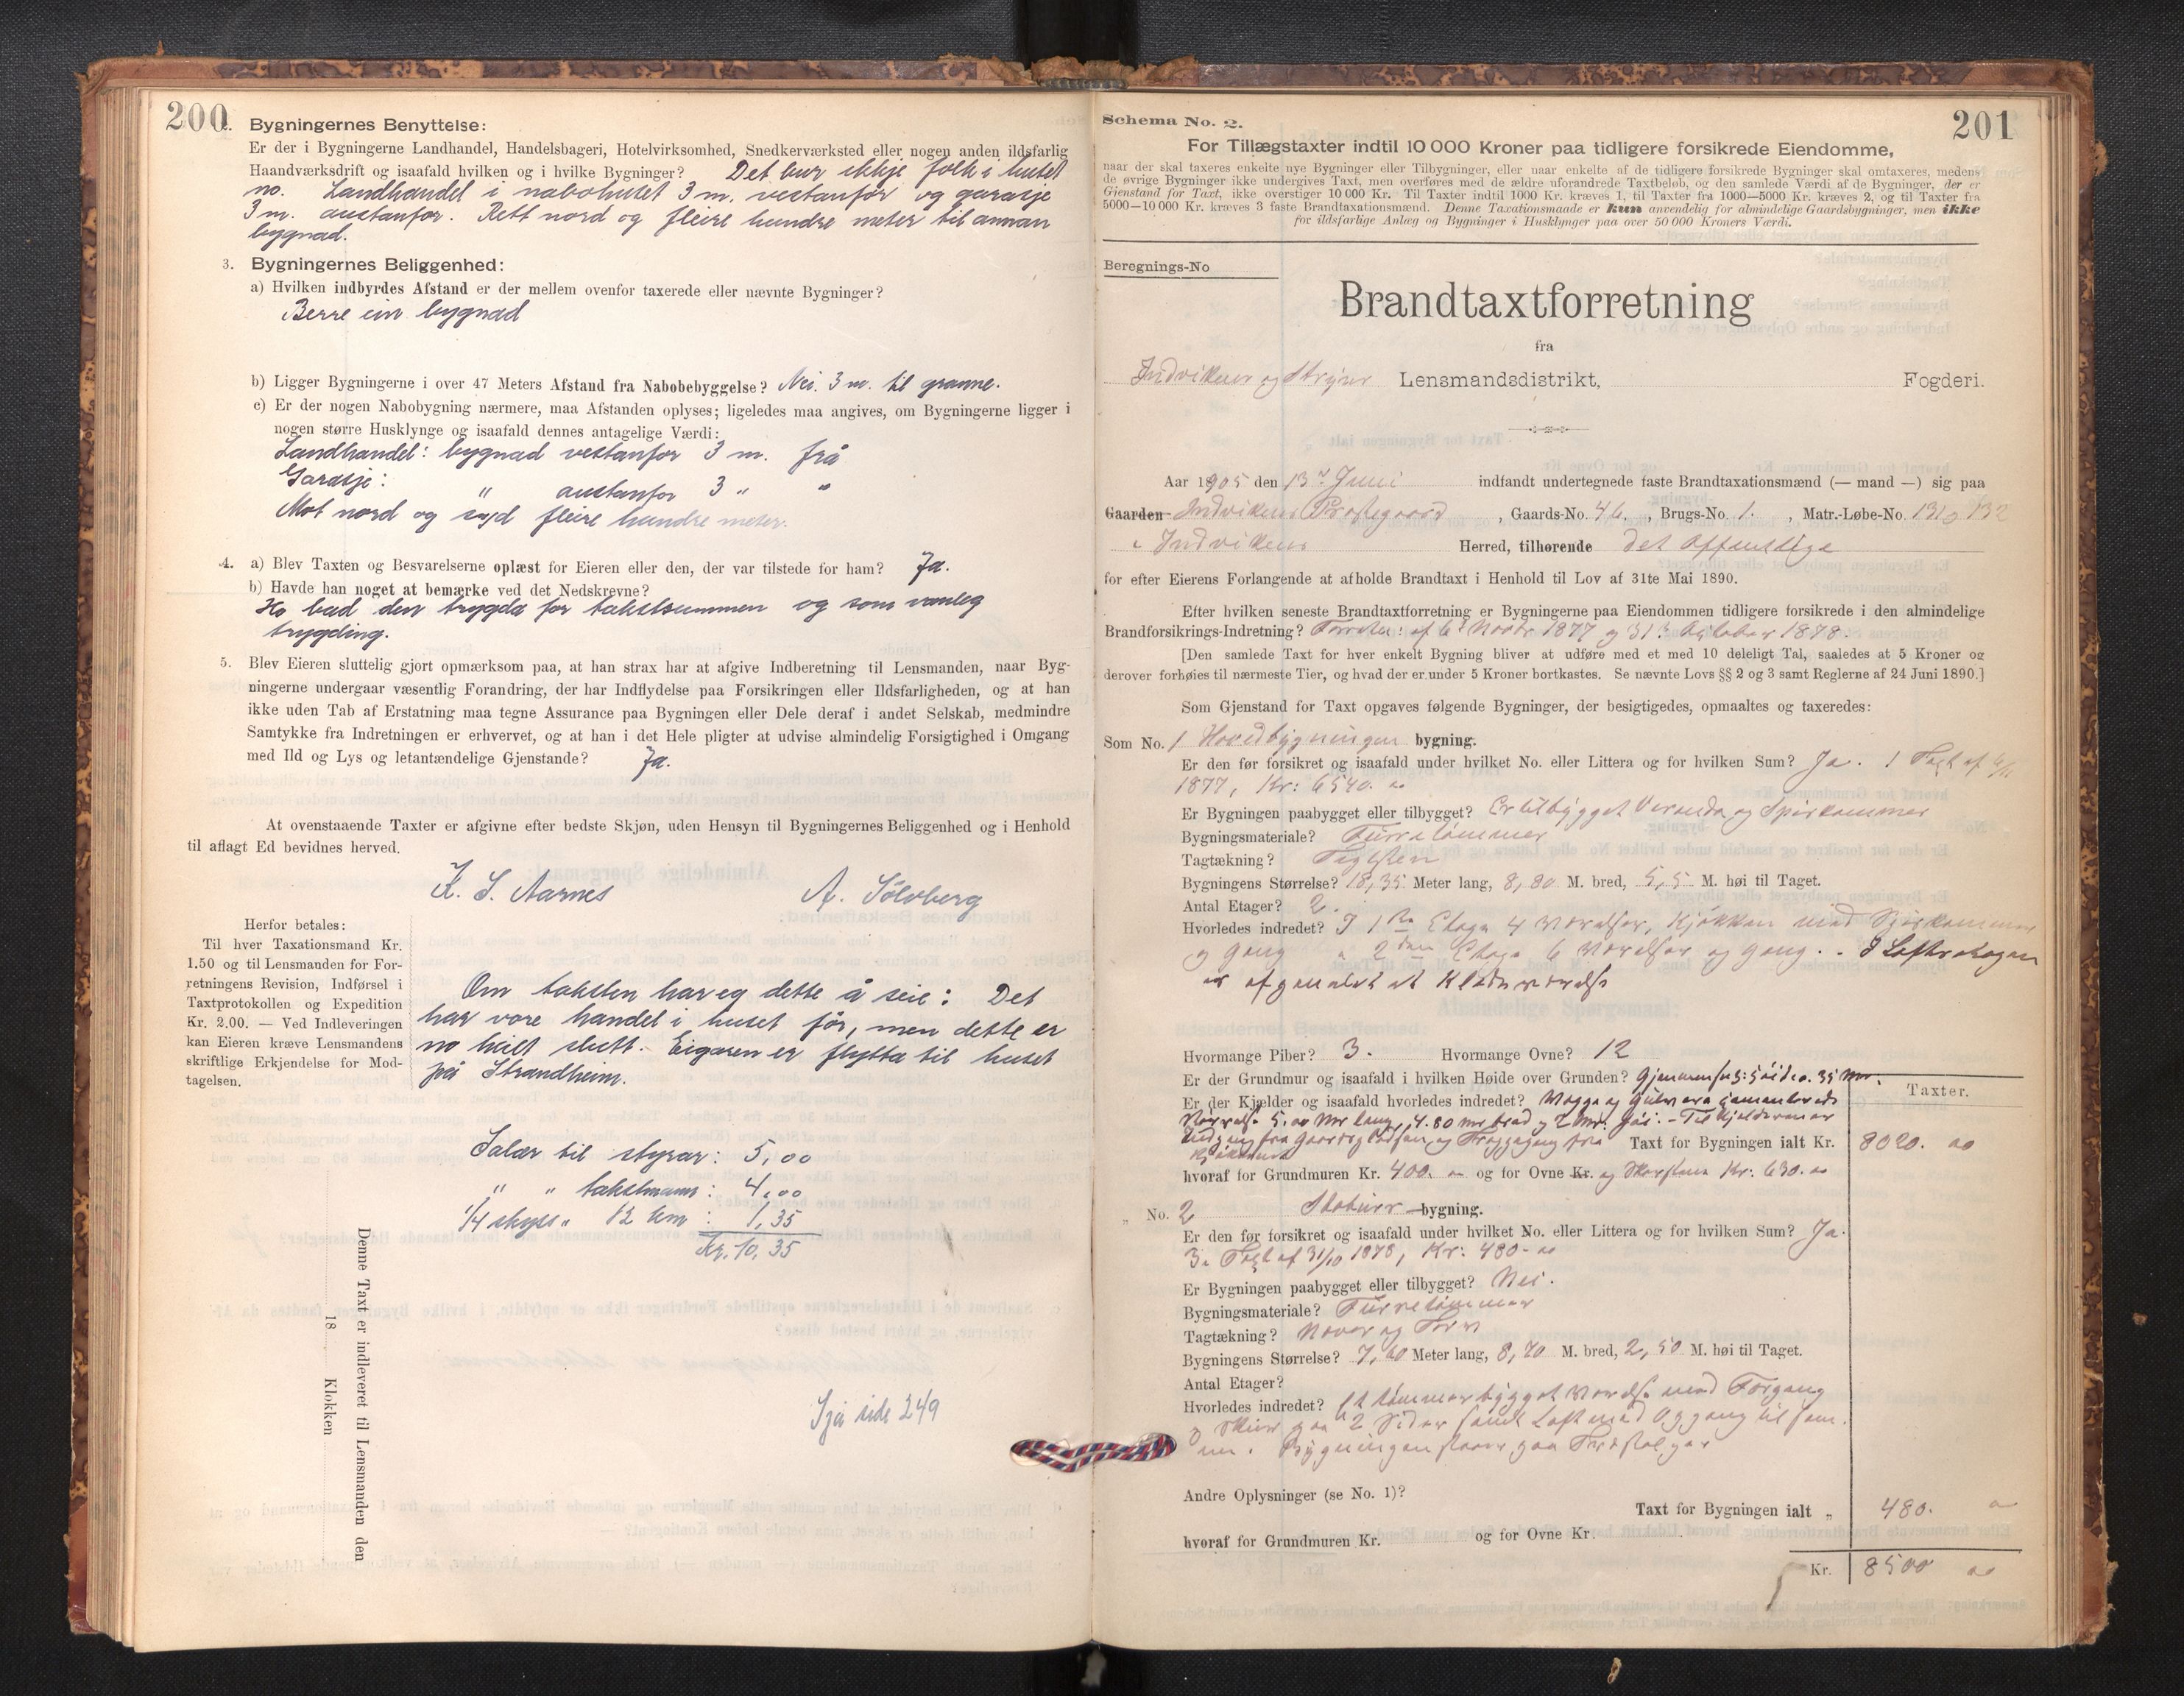 200
2. Bygningernes Benyttelse:
Er der i Bygningerne Landhandel, Handelsbageri, Hotelvirksomhed, Snedkerværksted eller nogen anden ildsfarlig
Haandværksdrift og isaafald hvilken og i hvilke Bygninger? Det bur ikkje folk i huset
no. Landhandel i nabohuset 3 m. vestanfor og garasje
3 m. austanfor. Rett nord og fleire hundre meter til annan
bygnad.
3. Bygningernes Beliggenhed:
a) Hvilken indbyrdes Afstand er der mellem ovenfor taxerede eller nævnte Bygninger?
Berre ein bygnad
b) Ligger Bygningerne i over 47 Meters Afstand fra Nabobebyggelse? Nei. 3 m. til granne.
c) Er der nogen Nabobygning nærmere, maa Afstanden oplyses; ligeledes maa angives, om Bygningerne ligger i
nogen større Husklynge og isaafald dennes antagelige Værdi:
Landhandel: bygnad vestanfor 3 m. frå
Garasje: " austanfor 3 " "
Mot nord og syd fleire hundre meter.
4. a) Blev Taxten og Besvarelserne oplæst for Eieren eller den, der var tilstede for ham? Ja.
b) Havde han noget at bemærke ved det Nedskrevne?
Ho bad den trygda for takstsummen og som vanleg
trygding.
5. Blev Eieren sluttelig gjort opmærksom paa, at han strax har at afgive Indberetning til Lensmanden, naar Byg-
ningerne undergaar væsentlig Forandring, der har Indflydelse paa Forsikringen eller Ildsfarligheden, og at han
ikke uden Tab af Erstatning maa tegne Assurance paa Bygningen eller Dele deraf i andet Selskab, medmindre
Samtykke fra Indretningen er erhvervet, og at han i det Hele pligter at udvise almindelig Forsigtighed i Omgang
med Ild og Lys og letantændelige Gjenstande? Ja.
At ovenstaaende Taxter er afgivne efter bedste Skjøn, uden Hensyn til Bygningernes Beliggenhed og i Henhold
til aflagt Ed bevidnes herved.
K. S. Aarnes A. Sølvberg
Herfor betales:
Til hver Taxationsmand Kr.
1.50 og til Lensmanden for For-
retningens Revision, Indførsel i
Taxtprotokollen og Expedition
Kr. 2.00. — Ved Indleveringen
kan Eieren kræve Lensmandens
skriftlige Erkjendelse for Mod-
tagelsen.
Om taksten har eg dette å seie: Det
har vore handel i huset før, men dette er
no heilt slutt. Eigaren er flytta til huset
på Strandheim.
Salær til styrar: 5,00
" " takstmann: 4,00
1/4 skyss " 12 km : 1,35
Kr. 10,35
Denne Taxt er indleveret til Lensmanden den
18 Klokken
Sjå side 249
201
Schema No. 2.
For Tillægstaxter indtil 10 000 Kroner paa tidligere forsikrede Eiendomme,
naar der skal taxeres enkelte nye Bygninger eller Tilbygninger, eller naar enkelte af de tidligere forsikrede Bygninger skal omtaxeres, medens
de øvrige Bygninger ikke undergives Taxt, men overføres med de ældre uforandrede Taxtbeløb, og den samlede Værdi af de Bygninger, der er
Gjenstand for Taxt, ikke overstiger 10 000 Kr. Til Taxter indtil 1000 Kr. kræves 1, til Taxter fra 1000—5000 Kr. kræves 2, og til Taxter fra
5000—10 000 Kr. kræves 3 faste Brandtaxationsmænd. Denne Taxationsmaade er kun anvendelig for almindelige Gaardsbygninger, men ikke
for ildsfarlige Anlæg og Bygninger i Husklynger paa over 50 000 Kroners Værdi.
Beregnings-No
Brandtaxtforretning
fra
Indviken og Stryns Lensmandsdistrikt, Fogderi.
Aar 1905 den 13de Juni indfandt undertegnede faste Brandtaxationsmænd (— mand —) sig paa
Gaarden Indvikens Præstegaard, Gaards-No. 46, Brugs-No. 1., Matr.-Løbe-No. 131 & 132
i Indvikens Herred, tilhørende det Offentlige
for efter Eierens Forlangende at afholde Brandtaxt i Henhold til Lov af 31te Mai 1890.
Efter hvilken seneste Brandtaxtforretning er Bygningerne paa Eiendommen tidligere forsikrede i den almindelige
Brandforsikrings-Indretning? Forretn: af 6te Novbr 1877 og 31te Oktober 1878.
[Den samlede Taxt for hver enkelt Bygning bliver at udføre med et med 10 deleligt Tal, saaledes at 5 Kroner og
derover forhøies til nærmeste Tier, og hvad der er under 5 Kroner bortkastes. Se nævnte Lovs §§ 2 og 3 samt Reglerne af 24 Juni 1890.]
Som Gjenstand for Taxt opgaves følgende Bygninger, der besigtigedes, opmaaltes og taxeredes:
Som No. 1 Hovedbygningen bygning.
Er den før forsikret og isaafald under hvilket No. eller Littera og for hvilken Sum? Ja. 1 Taxt af 6/11
1877, Kr: 6540. 00
Er Bygningen paabygget eller tilbygget? Er tilbygget Veranda og Spiskammer
Bygningsmateriale? Furretømmer
Tagtækning? Teglsten
Bygningens Størrelse? 18,35 Meter lang, 8,80 M. bred, 5,5 M. høi til Taget.
Antal Etager? 2.
Hvorledes indredet? I 1ste Etage 4 Værelser, Kjøkken med Spiskammer
og Gang " 2den Etage 6 Værelser og Gang. - I Loftsetagen
er afpanelet et Klædeværelse
Hvormange Piber? 3. Hvormange Ovne? 12
Er der Grundmur og isaafald i hvilken Høide over Grunden? Gjennemsn: Høide 0.35 Mtr.
Er der Kjælder og isaafald hvorledes indredet? Vægge og Gulv
Værelse 5.00 Mtr lang, 4.80 mtr bred og 2 Mtr. høi. - Til Kjælderen er
Indgang fra Gaardspladsen og Trappegang fra Taxt for Bygningen ialt Kr. 8020. 00
Kjøkkenet
hvoraf for Grundmuren Kr. 400. 00 og for Ovne Kr. og Skorstene Kr: 630. 00
Taxter.
„ No. 2 Stabburs bygning.
Er den før forsikret og isaafald under hvilket No. eller Littera og for hvilken Sum? Ja.
3. Taxt af 31/10 1878, Kr: 480- 00
Er Bygningen paabygget eller tilbygget? Nei.
Bygningsmateriale? Furretømmer
Tagtækning? Næver og Torv
Bygningens Størrelse? 7,60 Meter lang, 8,70 M. bred, 2,50 M. høi til Taget.
Antal Etager?
Hvorledes indredet? Et tømmerbygget Værelse med Forgang
og Skur paa 2 Sider samt Loft med Opgang til sam-
me. Bygningen staar paa
Andre Oplysninger (se No. 1)?
Taxt for Bygningen ialt „ 480.
hvoraf for Grundmuren Kr. og for Ovne Kr.
Kr. 8500 00